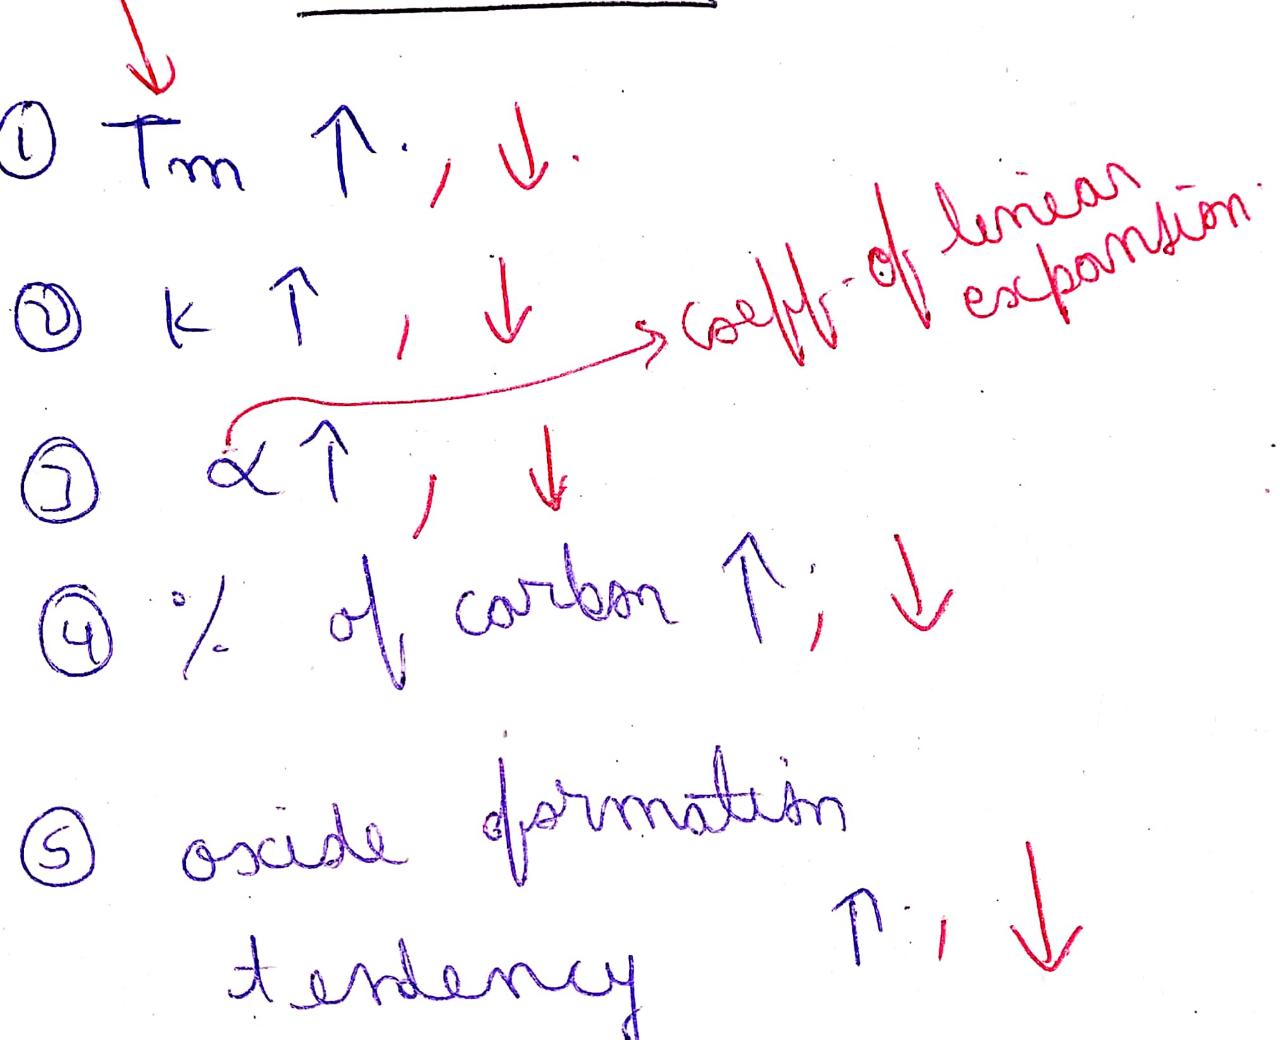 ① Tm ↑ , ↓
② K ↑ , ↓
coeff. of linear
expansion
③ α ↑ , ↓
④ % of carbon ↑ ; ↓
⑤ oxide formation
tendency ↑ , ↓